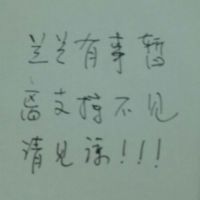 兰兰有事暂
离支不见
请见谅!!!